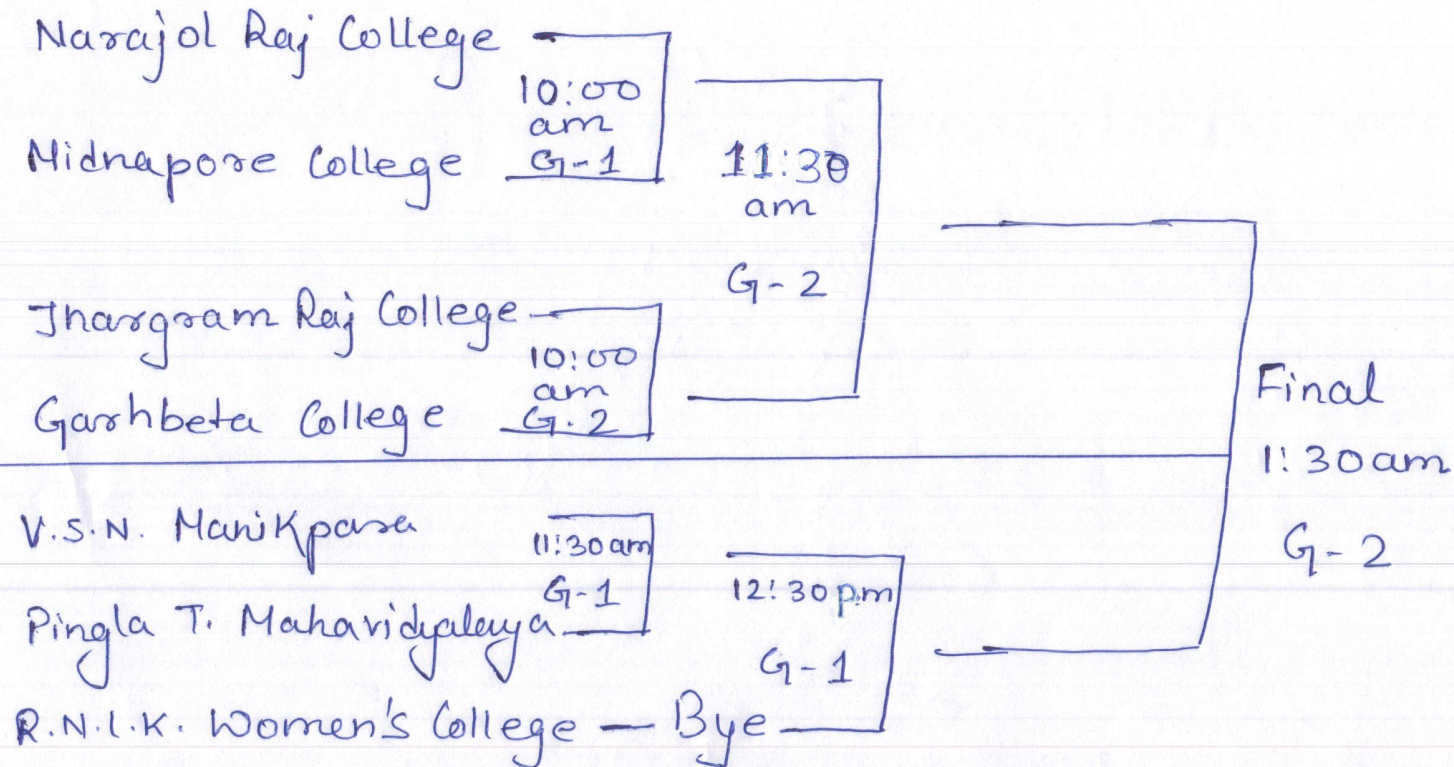 Narajol Raj College
10:00
am
G-1
Midnapore College
11:30
am
G-2
Jhargram Raj College
10:00
am
G.2
Garhbeta College
Final
1:30am
G-2
V.S.N. Manikpara
11:30am
G-1
Pingla T. Mahavidyalaya
12:30p.m
G-1
R.N.L.K. Women's College — Bye